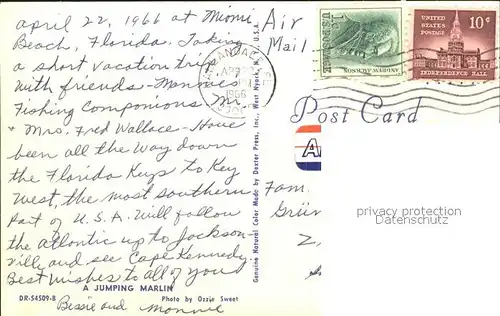 april 22, 1966 at Miami
Beach, Florida. Taking
a short vacation trip
with friends - Monnie's
Fishing Companions Mr.
+ Mrs. Fred Wallace - Have
been all the way down
the Florida Keys to Key
West, the most southern
part of U.S.A. Will follow
the atlantic up to Jackson-
ville and see Cape Kennedy.
Best wishes to all of you
Bessie and Monnie
A JUMPING MARLIN
DR-54509-B
Photo by Ozzie Sweet
Genuine Natural Color Made by Dexter Press, Inc., West Nyack, N. Y. U.S.A.
Air
Mail
APR 22
1966
U.S. POSTAGE
1¢
ANDREW JACKSON
UNITED
STATES
POSTAGE
10¢
INDEPENDENCE HALL
Post Card
A
Fam.
Grün
privacy protection
Datenschutz